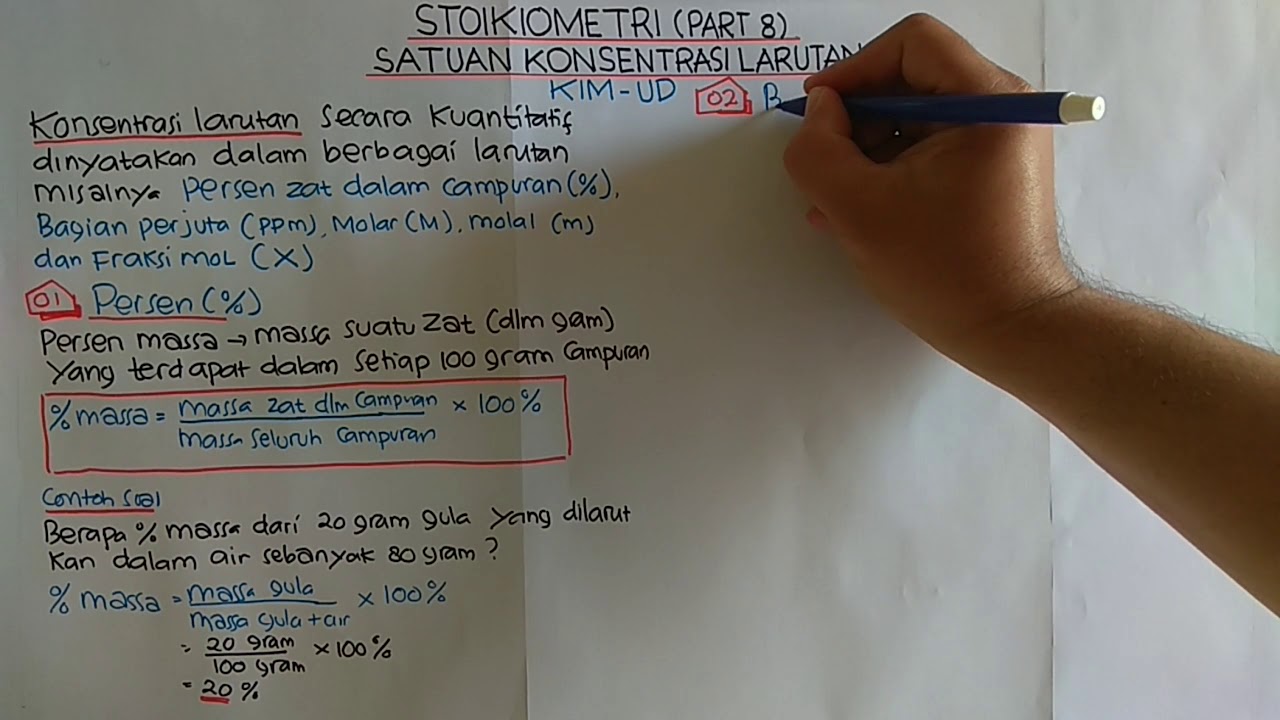 STOIKIOMETRI (PART 8)
SATUAN KONSENTRASI LARUTAN
KIM-UD
Konsentrasi larutan secara kuantitatif
dinyatakan dalam berbagai larutan
misalnya persen zat dalam campuran (%),
Bagian perjuta (PPm), Molar (M), molal (m)
dan Fraksi moL (X)
01 Persen (%)
Persen massa → massa suatu zat (dlm gam)
yang terdapat dalam setiap 100 gram Campuran
% massa = massa zat dlm Campuran × 100%
massa seluruh campuran
Contoh soal
Berapa % massa dari 20 gram gula yang dilarut
kan dalam air sebanyak 80 gram?
% massa = massa gula × 100%
massa gula + air
= 20 gram × 100%
100 gram
= 20 %
02 B